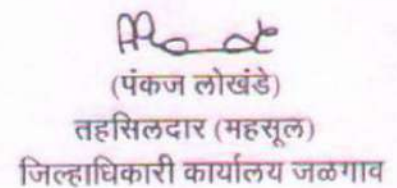 (पंकज लोखंडे)
तहसिलदार (महसूल)
जिल्हाधिकारी कार्यालय जळगाव